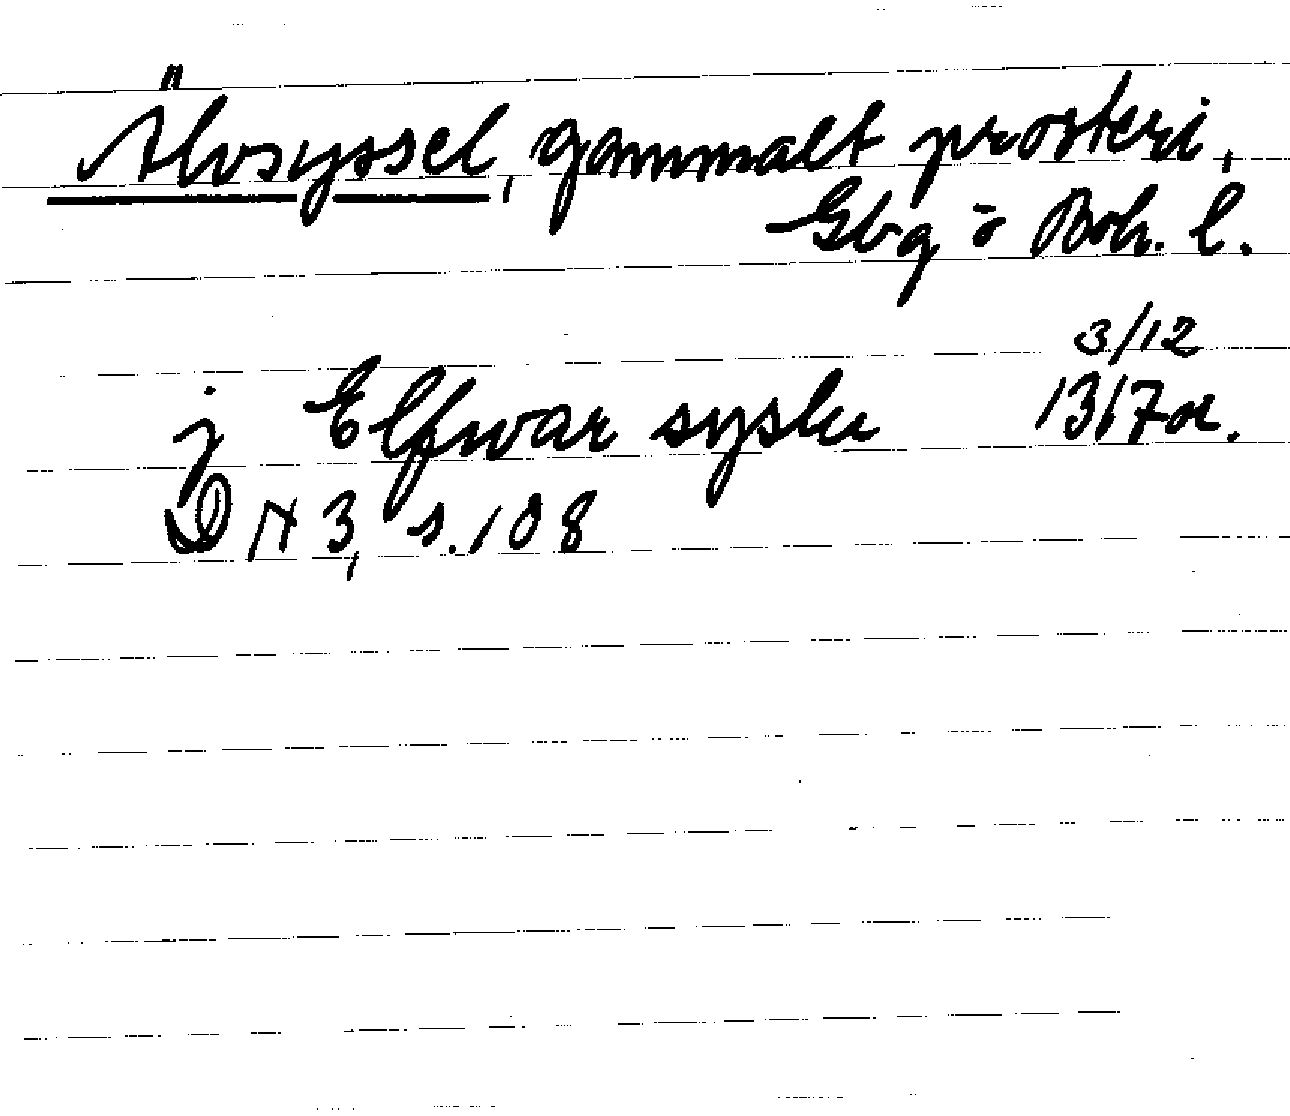 Älvsyssel, gammalt prosteri,
Gbg o Boh. l.
3/12
j Elfwar syslu 1317 or.
DN 3, s. 108